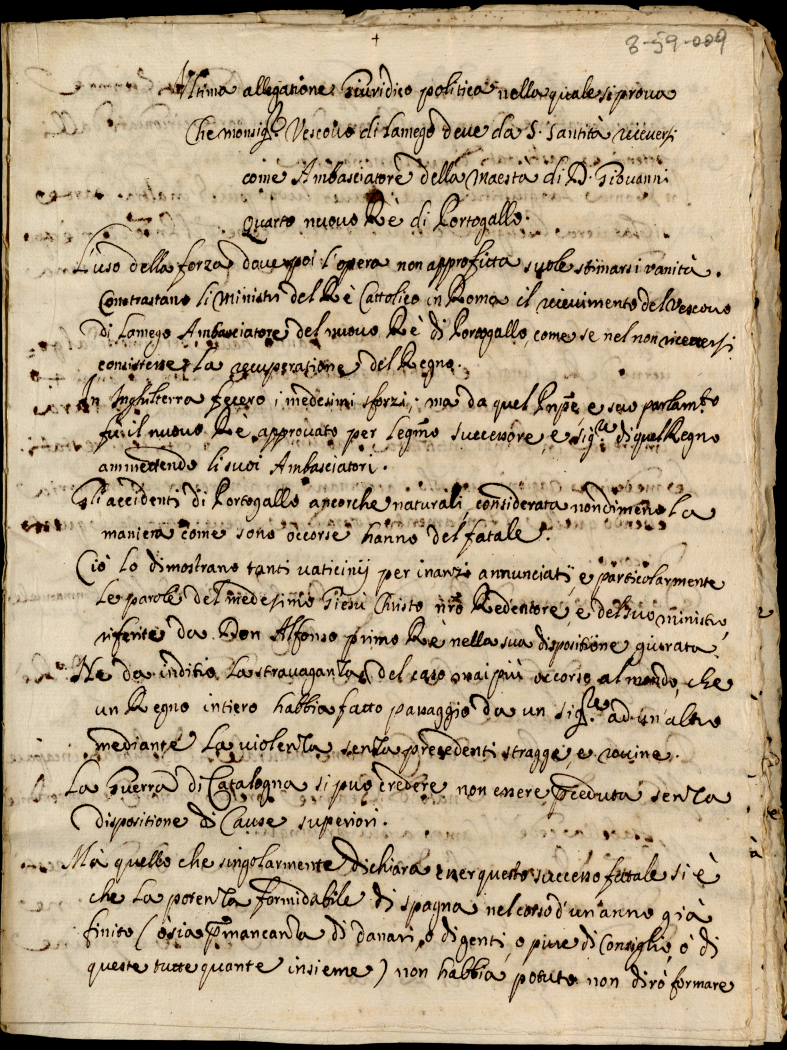 8-59-009
+
Ultima allegatione Giuridico politica nella quale si prova
Che monsig.r Vescovo di Lamego deve da S. Santità riceversi
come Ambasciatore della Maestà di D. Giovanni
Quarto nuovo Rè di Portogallo.
L'uso della forza dove poi l'opera non approfitta suole stimarsi vanità.
Contrastano li Ministri del Rè Cattolico in Roma il ricevimento del Vescovo
di Lamego Ambasciatore del nuovo Rè di Portogallo, come se nel non riceversi
consistesse la recuperatione del Regno.
In Inghilterra fecero i medesimi sforzi, ma da quel Prnpẽ, e suo parlam.to
fù il nuovo Rè approvato per legmo successore, e sig.re di quel Regno
ammettendo li suoi Ambasciatori.
Gl'accidenti di Portogallo ancorche naturali, considerata nondimeno la
maniera come sono occorse hanno del fatale.
Ciò lo dimostrano tanti vaticinij per inanzi annunciati, e particolarmente
le parole del medesimo Giesù Christo nr̃o Redentore, e del suo ministro,
riferite da Don Alfonso primo Rè nella sua dispositione giurata.
Ne da inditio la stravaganza del caso mai più occorso al mondo, che
un Regno intiero habbia fatto passaggio da un sig.re ad un'altro
mediante la violenza senza precedenti stragge, e rovine.
La Guerra di Catalogna si puo credere non essere pceduta senza
dispositione di Cause superiori.
Mà quello che singolarmente dichiara esser questo successo fatale si è
che la potenza formidabile di spagna nel corso d'un'anno già
finito (ò sia p mancanza di danari, ò di genti, o pure di Consiglio, ò di
queste tutte quante insieme) non habbia potuto non dirò formare